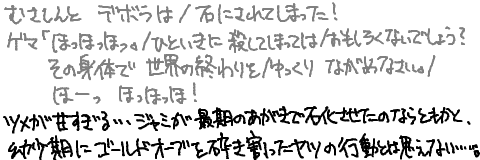 むさしんと デボラは/石にされてしまった!
ゲマ「ほっほっほっ。/ひといきに 殺してしまっては/おもしろくないでしょう?
その身体で 世界の終わりを/ゆっくり ながめなさい。/
ほーっ ほっほっほ!
ツメが甘すぎる…ジャミが最期のあがきで石化させたのならともかく、
幼少期にゴールドオーブを砕き割ったヤツの行動とは思えない……。